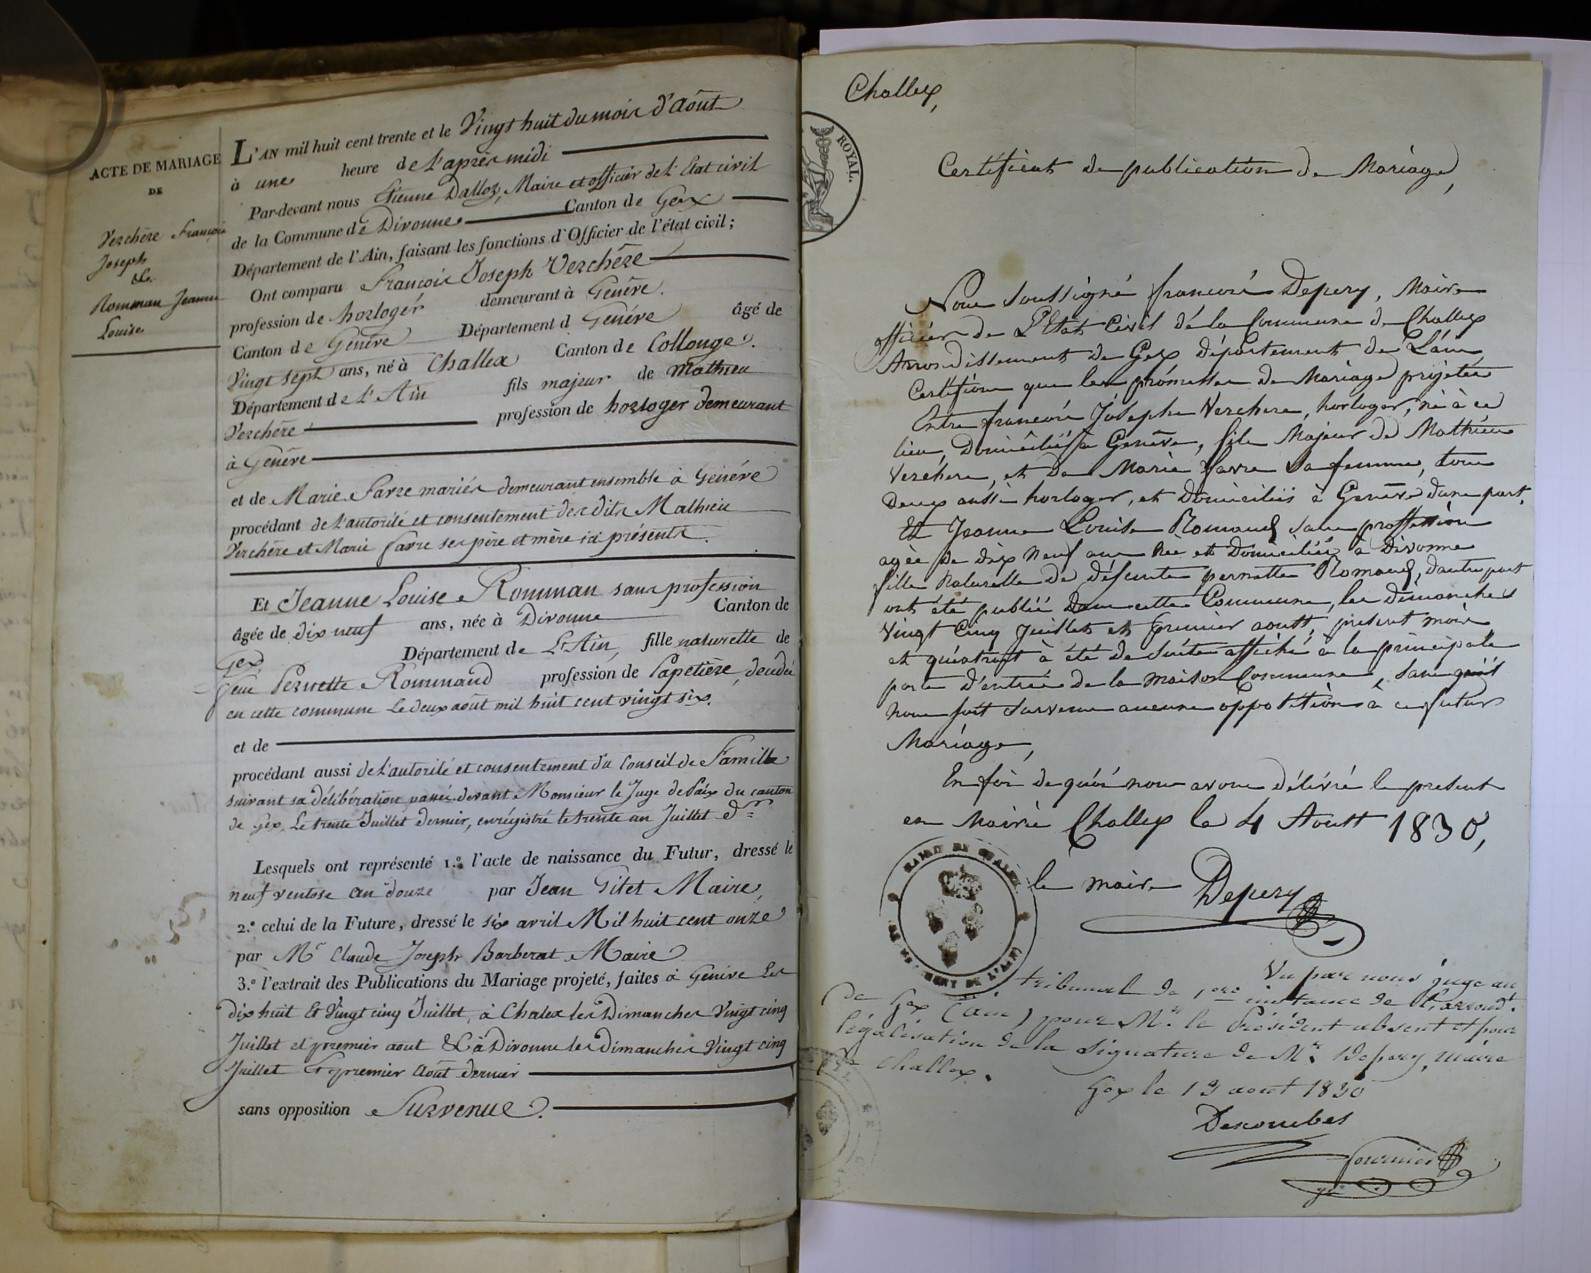 ACTE DE MARIAGE
DE
Verchère François
Joseph
&.
Romman Jeanne
Louise
L'AN mil huit cent trente et le Vingt huit du mois d'août
à une heure de l'après midi
Par-devant nous Etienne Dalloz, Maire et officier de l'Etat civil
de la Commune de Divonne Canton de Gex
Département de l'Ain, faisant les fonctions d'Officier de l'état civil;
Ont comparu François Joseph Verchère
profession de horloger demeurant à Genève.
Canton de Genève Département d Genève âgé de
Vingt sept ans, né à Challex Canton de Collonge.
Département de L'Ain fils majeur de Mathieu
Verchère profession de horloger demeurant
à Genève
et de Marie Favre mariés demeurant ensemble à Genève
procédant de l'autorité et consentement des dits Mathieu
Verchère et Marie Favre ses père et mère ici présents.
Et Jeanne Louise Romman sans profession
âgée de dix neuf ans, née à Divonne Canton de
Gex Département de L'Ain, fille naturelle de
feue Pernette Rommand profession de Papetière, décédée
en cette commune le deux août mil huit cent vingt six.
et de
procédant aussi de l'autorité et consentement du Conseil de Famille
suivant sa délibération passée devant Monsieur le Juge de Paix du canton
de Gex, Le trente Juillet dernier, enregistré le trente un Juillet dr
Lesquels ont représenté 1.º l'acte de naissance du Futur, dressé le
neuf ventose an douze par Jean Gitet Maire
2.º celui de la Future, dressé le six avril Mil huit cent onze
par Mr Claude Joseph Barberat Maire
3.º l'extrait des Publications du Mariage projeté, faites à Genève Les
dix huit Et Vingt cinq Juillet, à Chalex les Dimanches Vingt cinq
Juillet et premier aout & à Divonne les Dimanches Vingt cinq
Juillet Et premier Août dernier
sans opposition Survenue.
Challex,
ROYAL.
Certificat de publication de Mariage,
Nous soussigné francois Depery, Maire
officier de L'Etat Civil de la Commune de Challex
Arrondissement de Gex département de L'ain
Certifions que les promesses de Mariage projetée
Entre francois Joseph Verchere, horloger, né à ce
lieu, Domicilié à Genève, fils Majeur de Mathieu
Verchere, et de Marie favre sa femme, tous
Deux aussi horloger, et Domiciliés à Genève d'une part.
Et Jeanne Louise Romand sans proffession
agée de dix Neuf ans Nee et Domiciliée à Divonne
fille Naturelle de défunte pernette Romand, d'autre part
ont été publié Dans cette Commune, les Dimanches
Vingt Cinq Juillet et premier aoutt, present mois
et qu'extrait à été de Suite affiché à la principale
porte D'entrée de la Maison Commune, sans qu'il
nous soit Survenu aucune opposition à ce futur
Mariage,
En foi de quoi nous avons délivré le present
en Mairie Challex le 4 Aoutt 1830,
le maire Depery
Vu par nous juge au
tribunal de 1ere instance de l'arrondt.
de Gex (ain) pour Mr. le Président absent et pour
légalisation de la signature de Mr. Depery, maire
de challex.
Gex le 13 aout 1830
Descombes
fournier